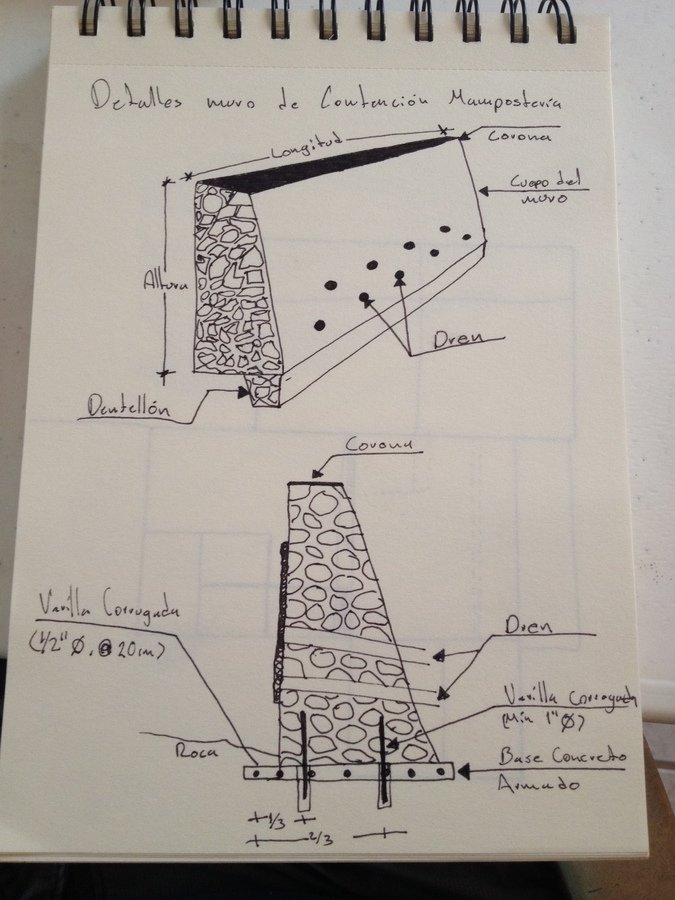 Detalles muro de Contención Mampostería
Longitud
Corona
Cuerpo del
muro
Altura
Dren
Dentellón
Corona
Varilla Corrugada
(1/2" Ø. @ 20cm)
Dren
Varilla Corrugada
(Min 1" Ø)
Roca
Base Concreto
Armado
1/3
2/3